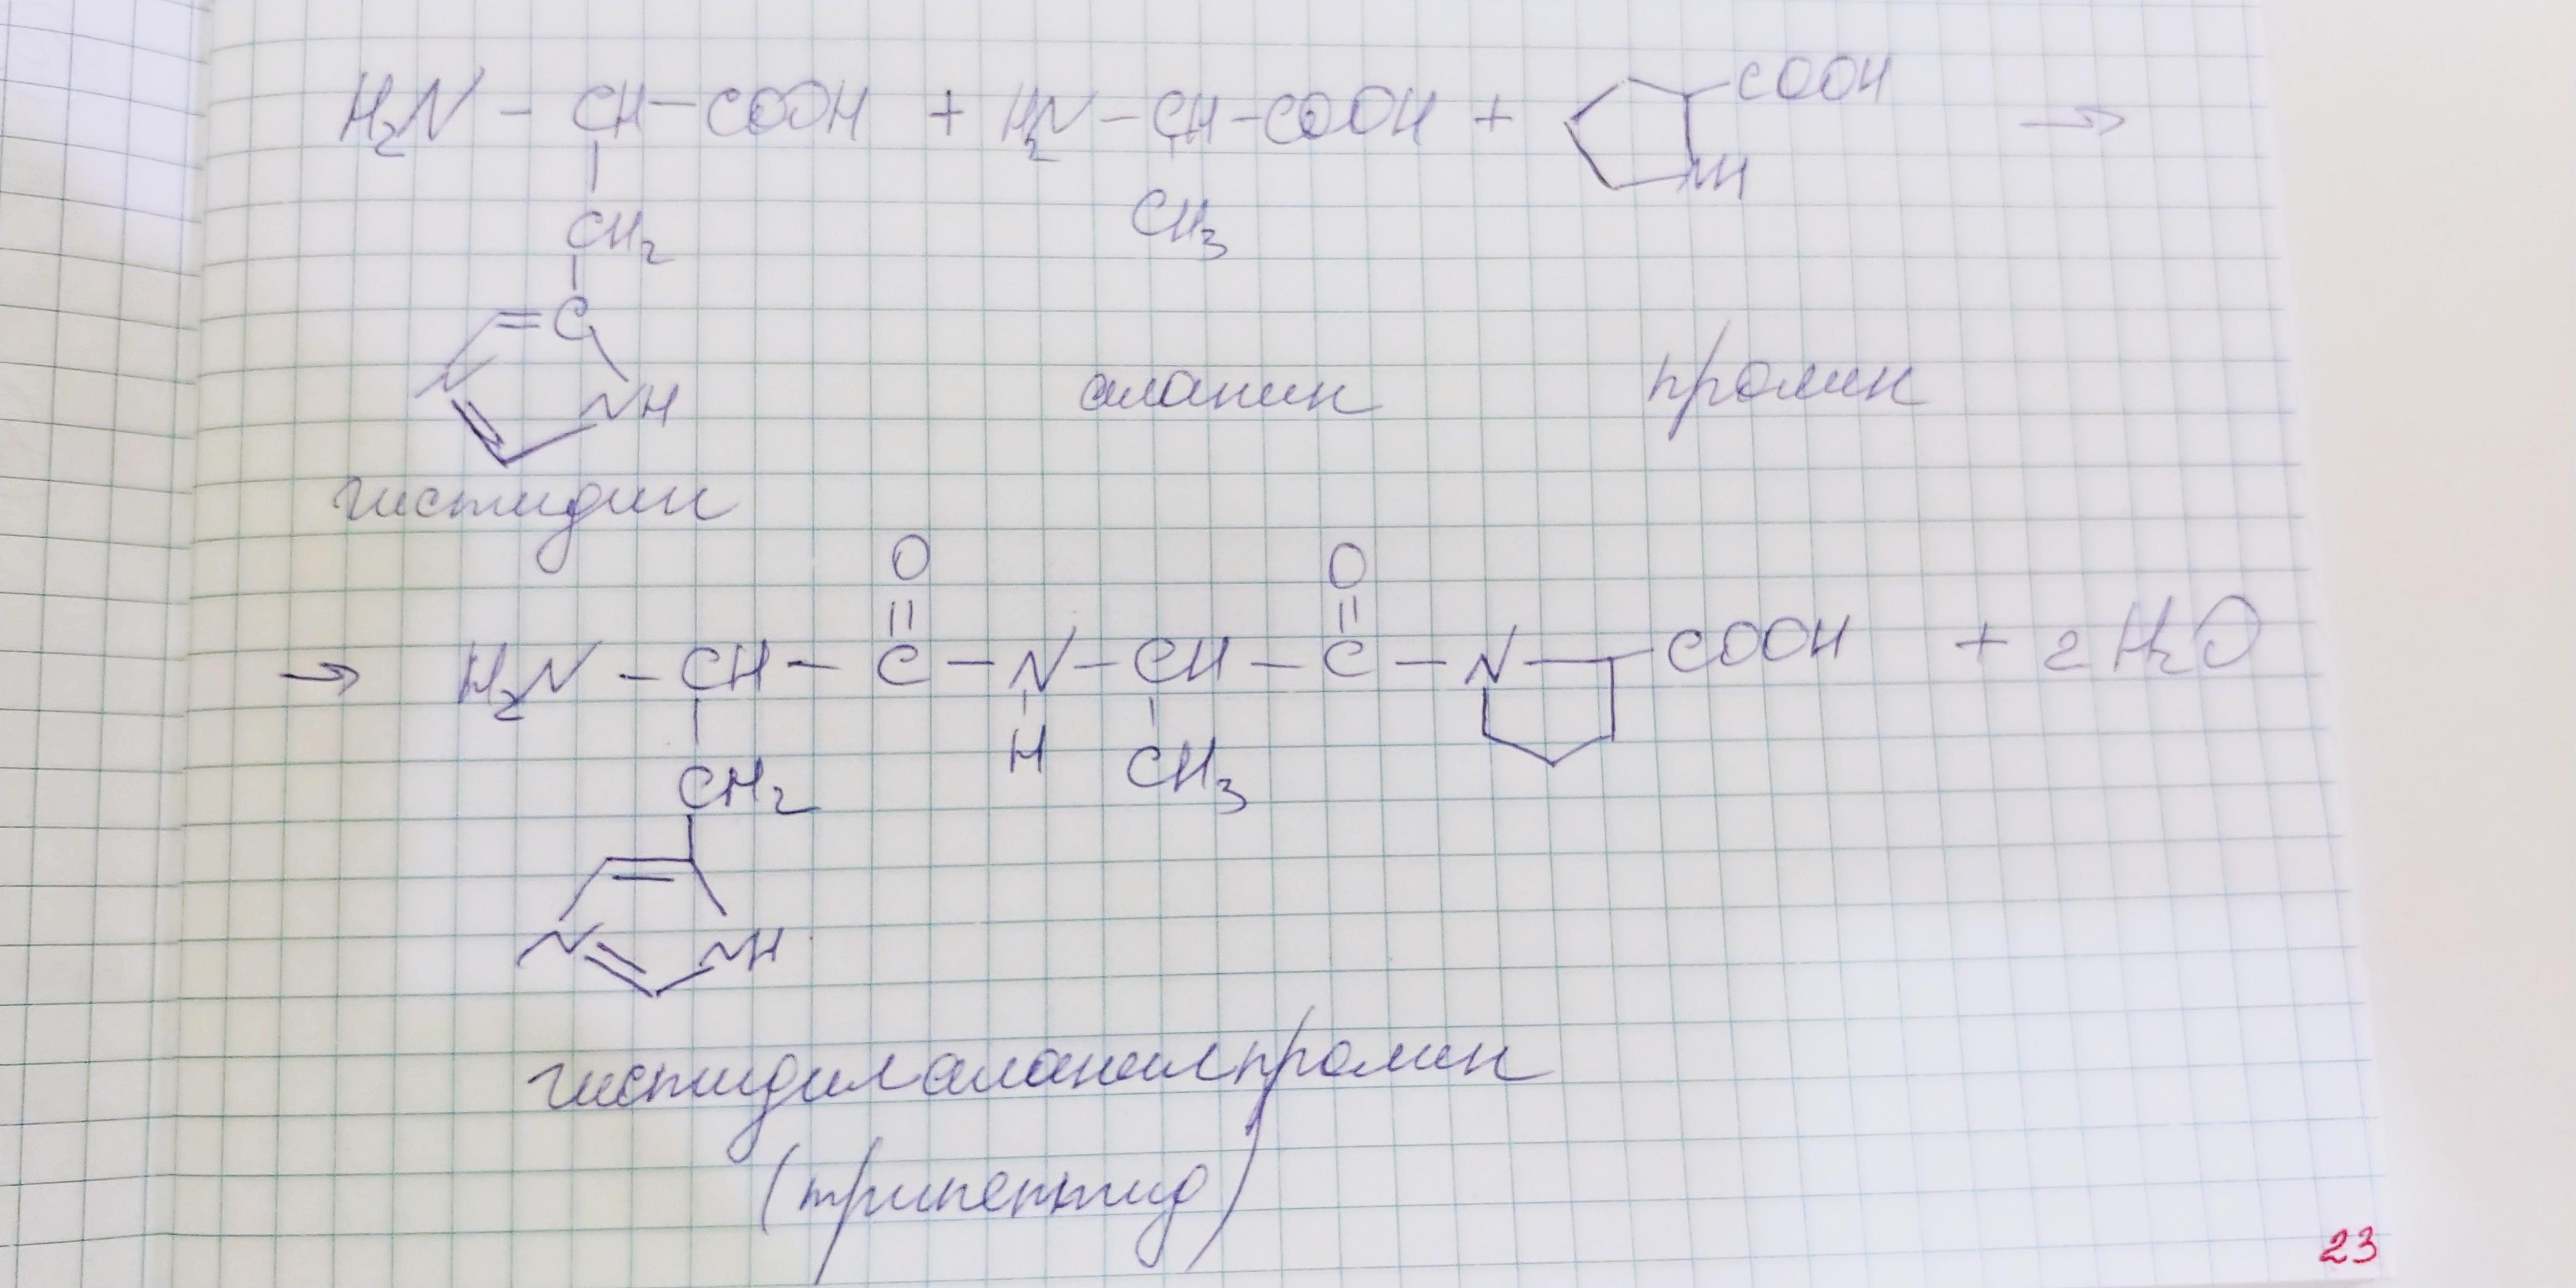 H₂N – CH – COOH + H₂N – CH – COOH + COOH →
NH
CH₂
CH₃
C
N
NH
аланин пролин
гистидин
O O
→ H₂N – CH – C – N – CH – C – N COOH + 2 H₂O
H
CH₂ CH₃
N NH
гистидилаланилпролин
(трипептид)
23